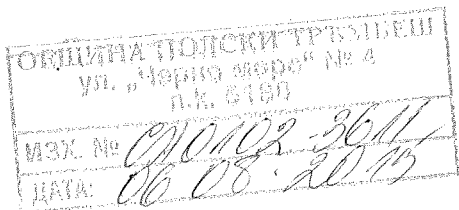 ОБЩИНА ПОЛСКИ ТРЪМБЕШ
ул. „Черно море“ № 4
п.к. 5180
ИЗХ. №
ДАТА: 06 08. 2013